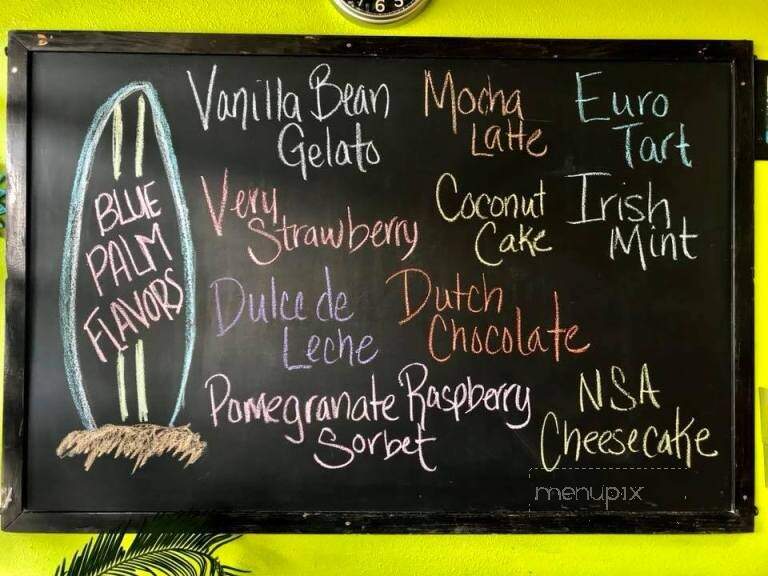 6 5
BLUE
PALM
FLAVORS
Vanilla Bean
Gelato
Mocha
Latte
Euro
Tart
Very
Strawberry
Coconut
Cake
Irish
Mint
Dulce de
Leche
Dutch
Chocolate
Pomegranate Raspberry
Sorbet
NSA
Cheesecake
menupix